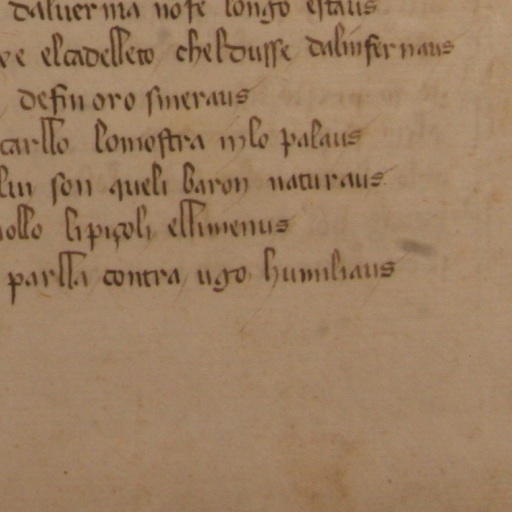 daluernia nose longo estaus
elcadelleto cheldusse dalinfernaus
defin oro smeraus
carllo lomostra inlo palaus
son queli baron naturaus
li piçoli ellimenus
parlla contra ugo humiliaus